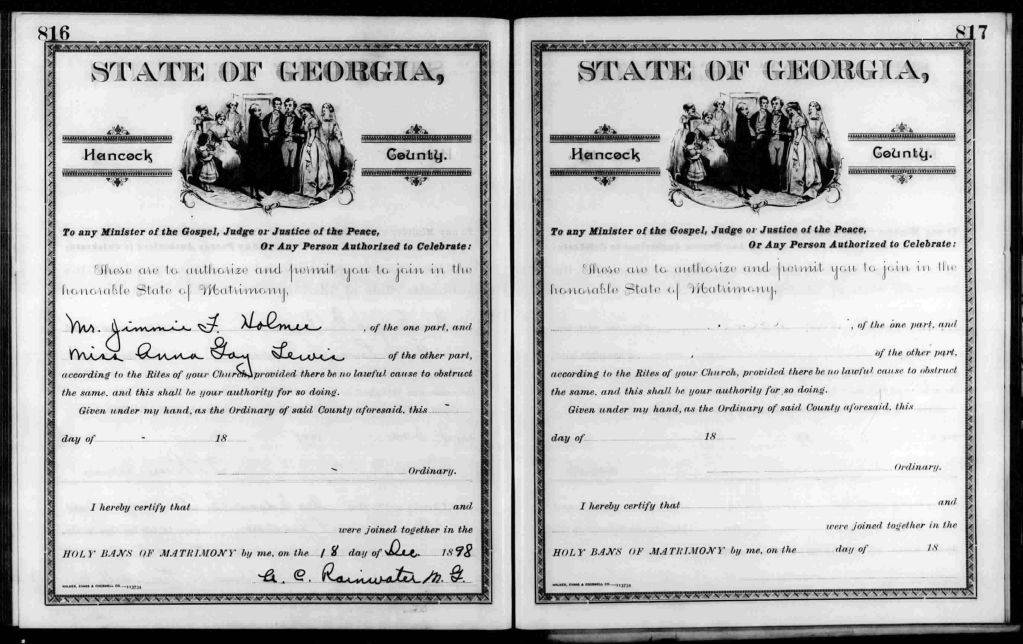 816
STATE OF GEORGIA,
Hancock County.
To any Minister of the Gospel, Judge or Justice of the Peace,
Or Any Person Authorized to Celebrate:
These are to authorize and permit you to join in the
honorable State of Matrimony,
Mr. Jimmie F. Holmes, of the one part, and
Miss Anna Gay Lewis of the other part,
according to the Rites of your Church, provided there be no lawful cause to obstruct
the same, and this shall be your authority for so doing.
Given under my hand, as the Ordinary of said County aforesaid, this
day of 18
Ordinary.
I hereby certify that and
were joined together in the
HOLY BANS OF MATRIMONY by me, on the 18 day of Dec 1898
A. C. Rainwater M. G.
WALKER, EVANS & COGSWELL CO.—113734
817
STATE OF GEORGIA,
Hancock County.
To any Minister of the Gospel, Judge or Justice of the Peace,
Or Any Person Authorized to Celebrate:
These are to authorize and permit you to join in the
honorable State of Matrimony,
, of the one part, and
of the other part,
according to the Rites of your Church, provided there be no lawful cause to obstruct
the same, and this shall be your authority for so doing.
Given under my hand, as the Ordinary of said County aforesaid, this
day of 18
Ordinary.
I hereby certify that and
were joined together in the
HOLY BANS OF MATRIMONY by me, on the day of 18
WALKER, EVANS & COGSWELL CO.—113734